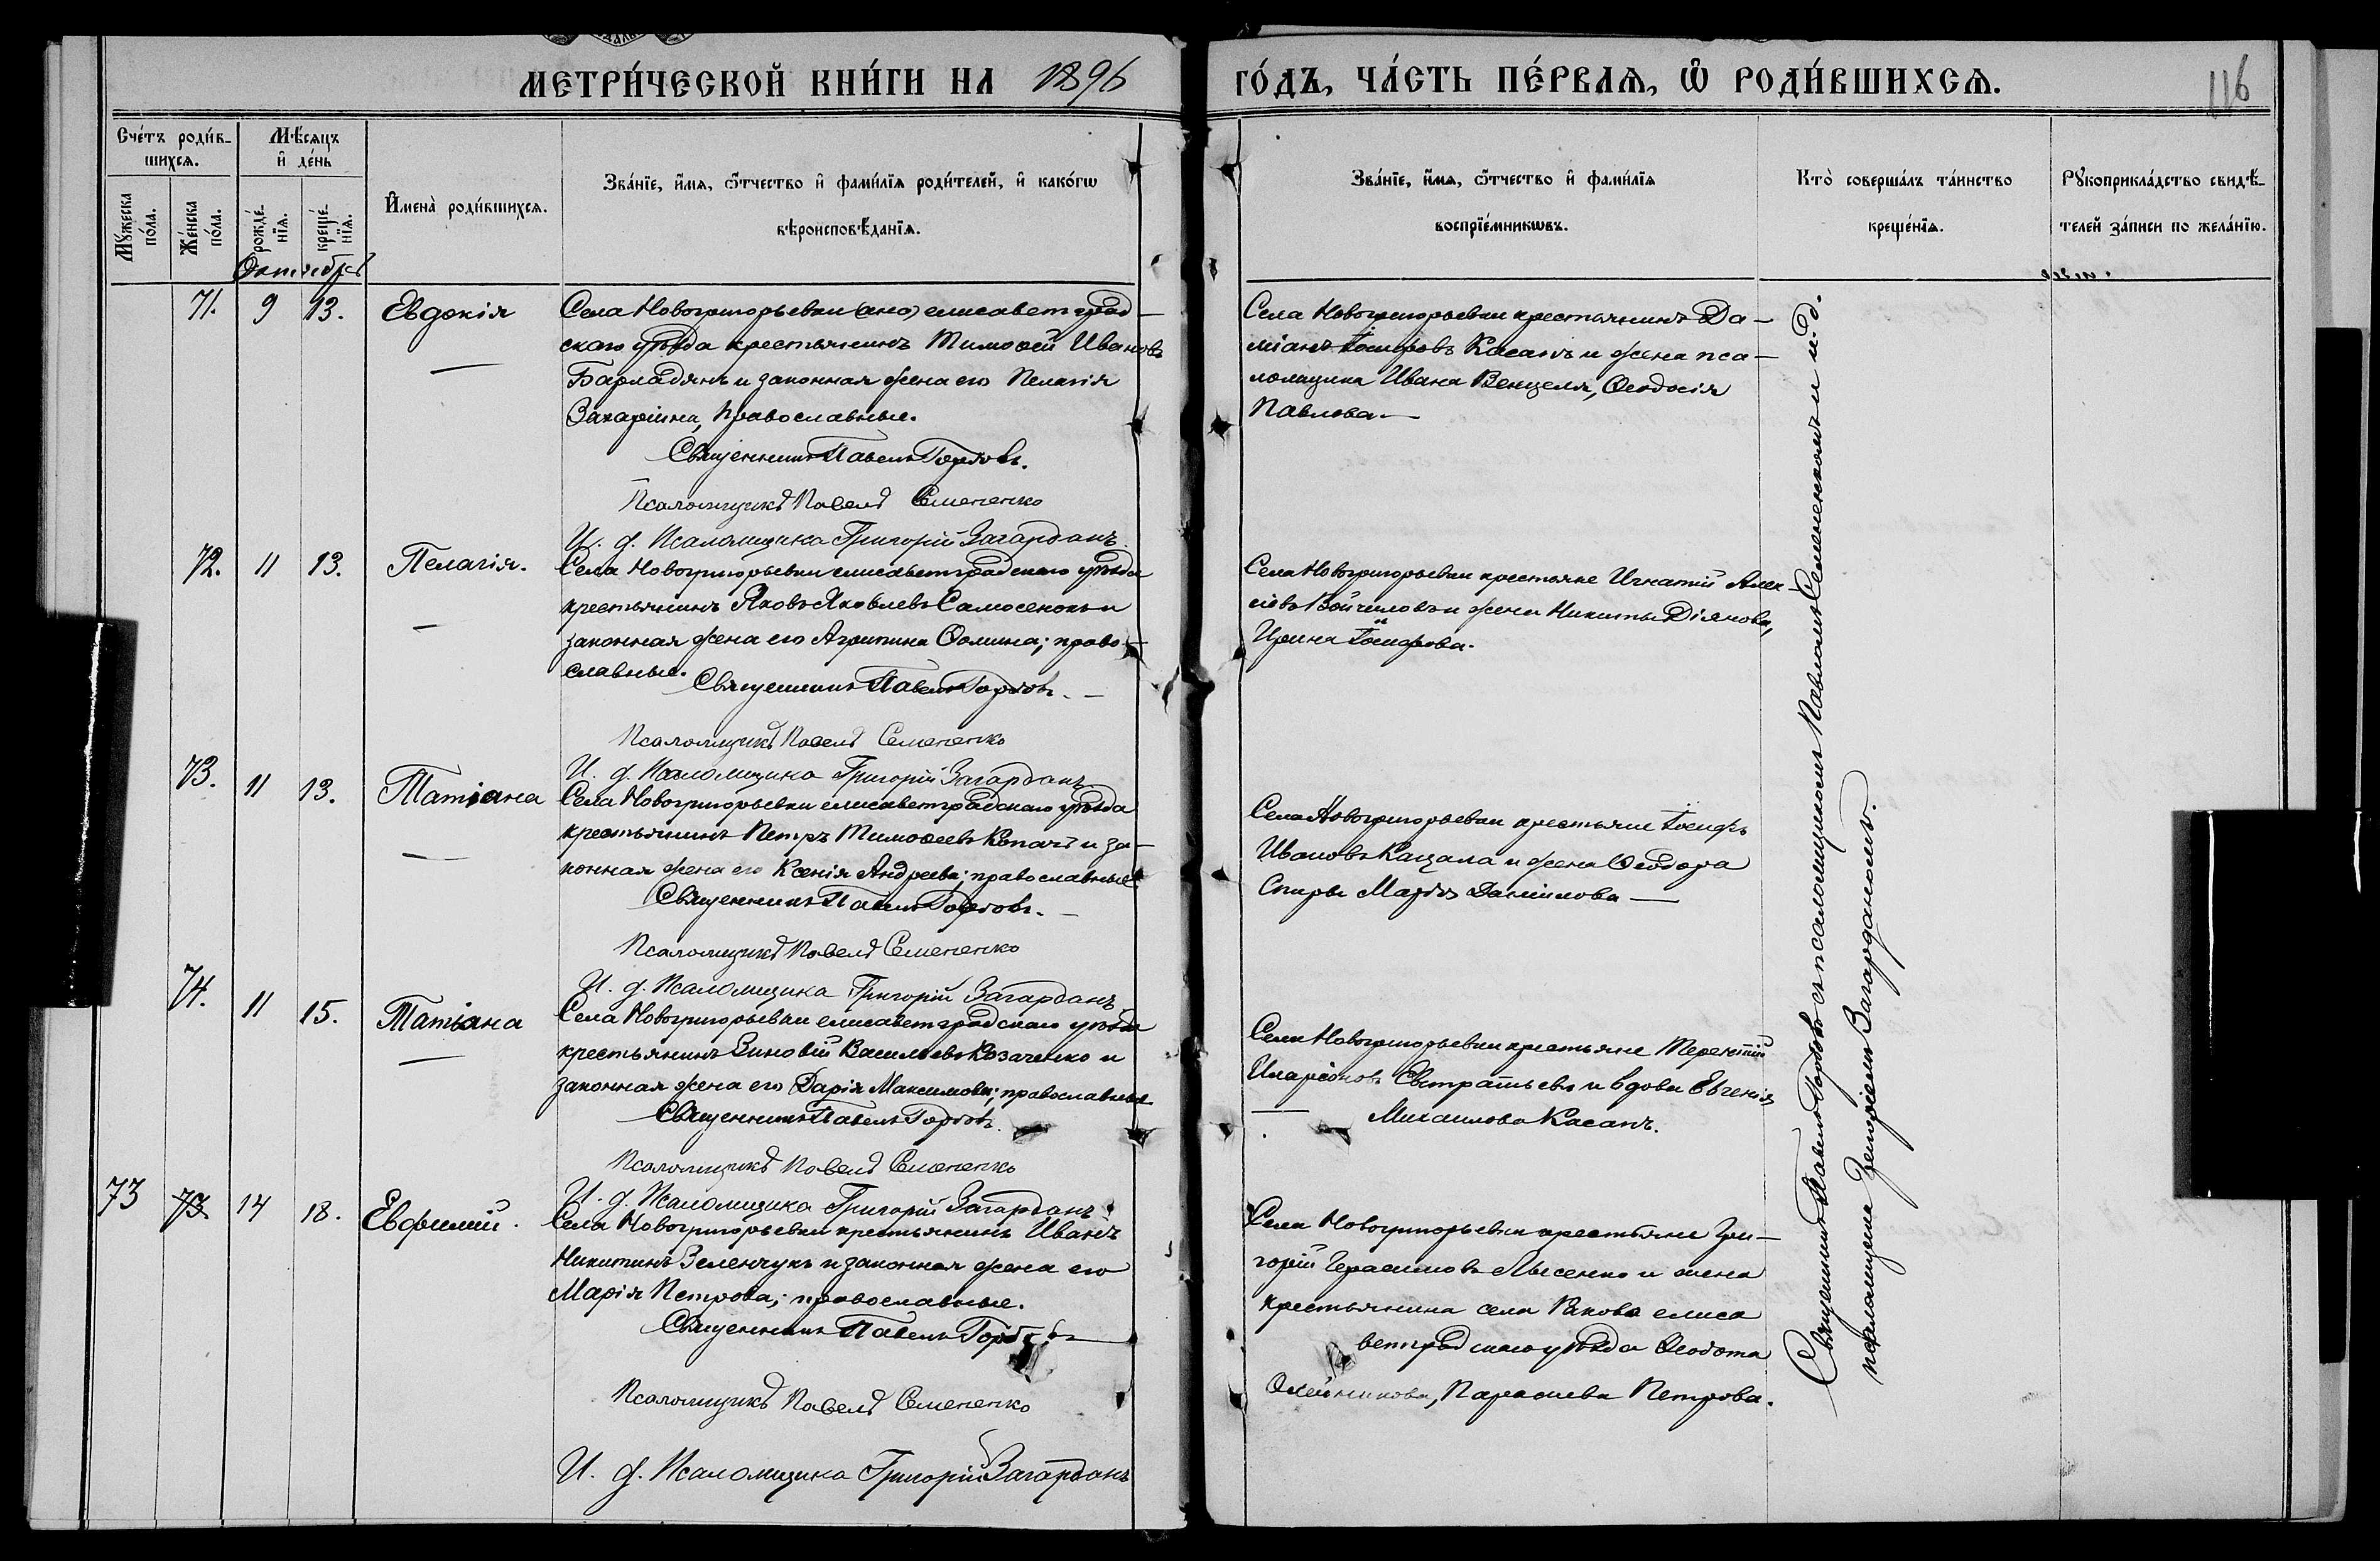 МЕТРИ́ЧЕСКОЙ КНИ́ГИ НА 1896 ГО́ДЪ, ЧА́СТЬ ПЕ́РВАѦ, Ѿ РОДИ́ВШИХСѦ.
116
Сче́тъ роди́в-
шихсѧ.
Мѣ́сѧцъ
и҆ де́нь
Мꙋ́жеска
по́ла.
Же́нска
по́ла.
рожде́-
нїѧ.
креще́-
нїѧ.
И҆мена̀ роди́вшихсѧ.
Зва́нїе, и҆́мѧ, ѻ҆́тчество и҆ фами́лїѧ роди́телей, и҆ како́гѡ
вѣроисповѣ́данїѧ.
Зва́нїе, и҆́мѧ, ѻ҆́тчество и҆ фами́лїѧ
воспрїе́мникѡвъ.
Кто̀ соверша́лъ та́инство
креще́нїѧ.
Рꙋкоприкла́дство свидѣ́-
телей за́писи по жела́нїю.
Октябрь
71. 9 13. Евдокія
Села Новогригорьевки (ана) елисаветград-
скаго уѣзда крестьянинъ Тимоѳей Ивановъ
Барладянъ и законная жена его Пелагія
Захаріина, православные.
Священникъ Павелъ Горбовъ.
Псаломщикъ Павелъ Семененко
И. д. Псаломщика Григорій Загарданъ
Села Новогригорьевки крестьянинъ Да-
міанъ Іосифовъ Касапъ и жена пса-
ломщика Ивана Венцеля, Ѳеодосія
Павлова.
72. 11 13. Пелагія.
Села Новогригорьевки елисаветградскаго уѣзда
крестьянинъ Яковъ Яковлевъ Самосенокъ и
законная жена его Агрипина Ѳомина; право-
славные.
Священникъ Павелъ Горбовъ.
Псаломщикъ Павелъ Семененко
И. д. Псаломщика Григорій Загарданъ
Села Новогригорьевки крестьяне Игнатій Алек-
сіевъ Войчиловъ и жена Никиты Діянова,
Ирина Іосифова.
73. 11 13. Татіана
Села Новогригорьевки елисаветградскаго уѣзда
крестьянинъ Петръ Тимоѳеевъ Копачъ и за-
конная жена его Ксенія Андреева; православные
Священникъ Павелъ Горбовъ.
Псаломщикъ Павелъ Семененко
И. д. Псаломщика Григорій Загарданъ
Села Новогригорьевки крестьяне Іосифъ
Ивановъ Кацала и жена Ѳеодора
Спиры Марѳа Даніилова
74. 11 15. Татіана
Села Новогригорьевки елисаветградскаго уѣзда
крестьянинъ Зиновій Васильевъ Козаченко и
законная жена его Дарія Максимова; православные
Священникъ Павелъ Горбовъ.
Псаломщикъ Павелъ Семененко
И. д. Псаломщика Григорій Загарданъ
Села Новогригорьевки крестьяне Терентій
Иларіоновъ Евстратьевъ и вдова Евгенія
Михаилова Касапъ.
73 73. 14 18. Евфимій.
Села Новогригорьевки крестьянинъ Иванъ
Никитинъ Зеленчукъ и законная жена его
Марія Петрова; православные.
Священникъ Павелъ Горбовъ
Псаломщикъ Павелъ Семененко
И. д. Псаломщика Григорій Загарданъ
Села Новогригорьевки крестьяне Гри-
горій Герасимовъ Лысенко и жена
крестьянина села Ракова елиса
ветградскаго уѣзда Ѳеодота
Олейникова, Параскева Петрова.
Священникъ Павелъ Горбовъ съ псаломщикомъ Павломъ Семененкомъ и и. д.
псаломщика Григоріемъ Загарданомъ.